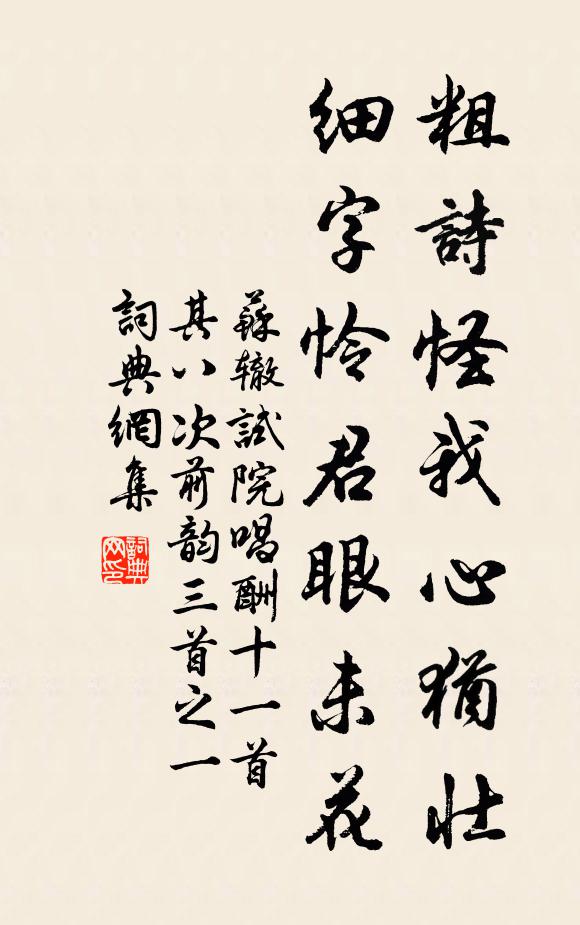 粗詩怪我心猶壯
細字怜君眼未花
蘇辙試院唱酬十一首
其八次前韵三首之一
詞典網集
詞典网印